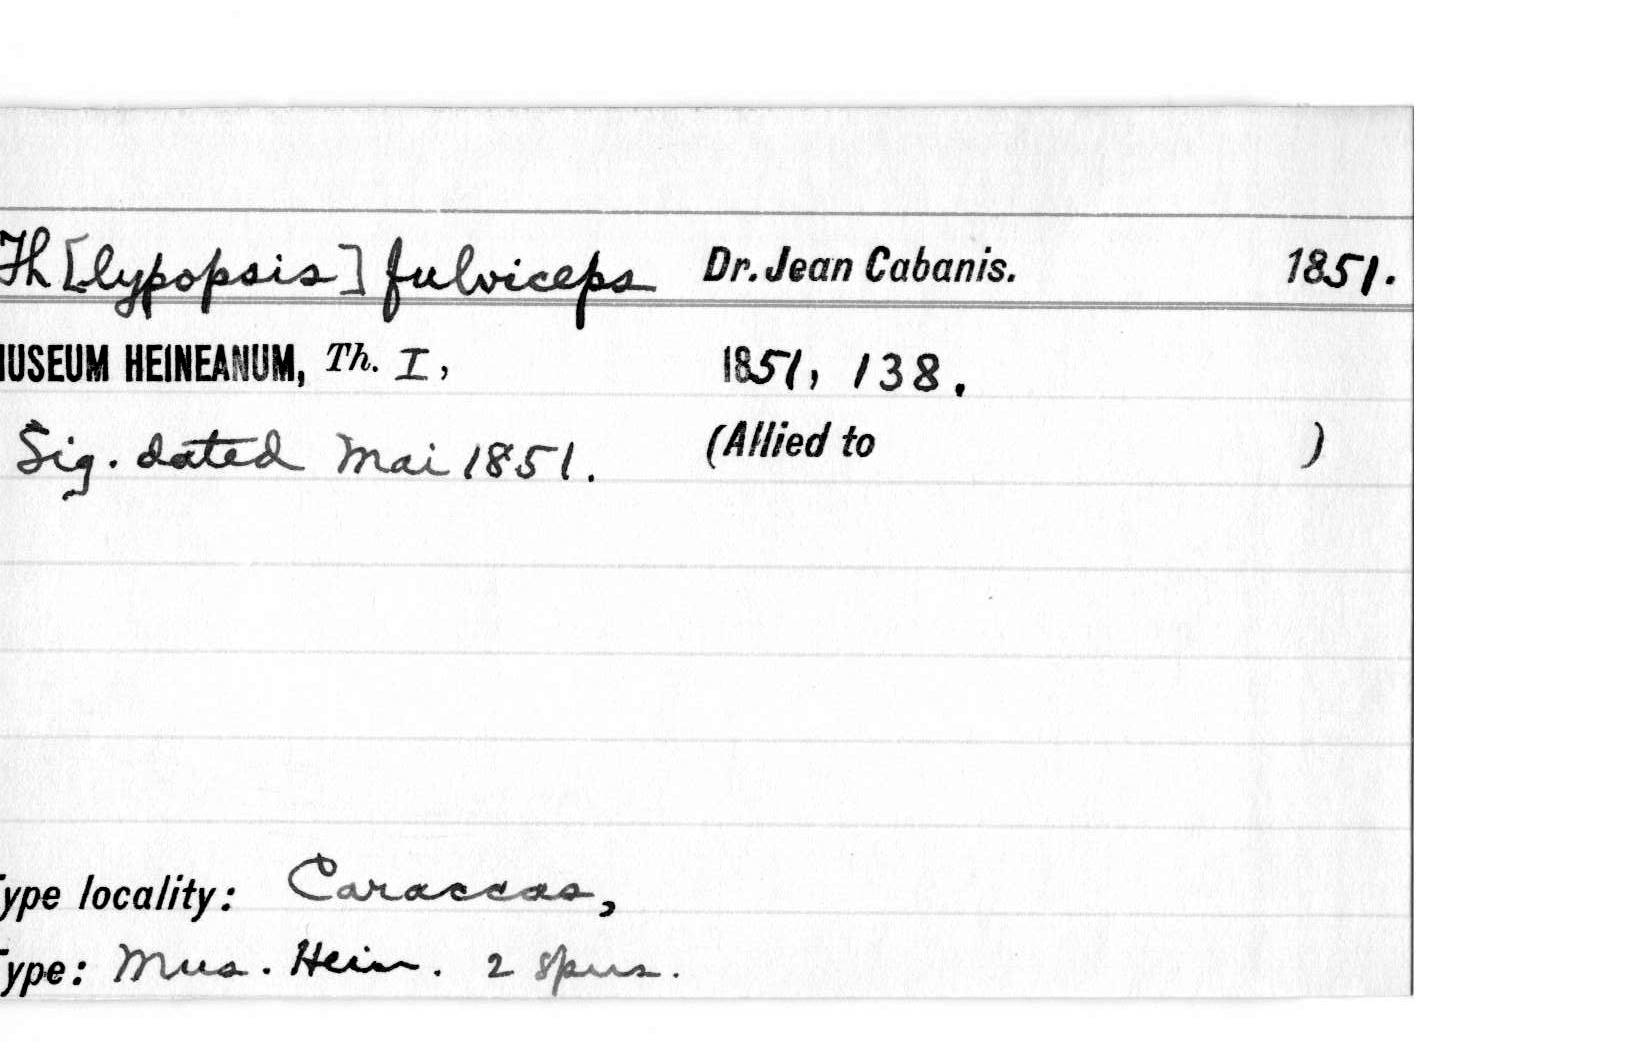 Th[lypopsis] fulviceps Dr. Jean Cabanis. 1851.
MUSEUM HEINEANUM, Th. I, 1851, 138.
Sig. dated Mai 1851. (Allied to )
Type locality: Caraccas,
Type: Mus. Hein. 2 spms.